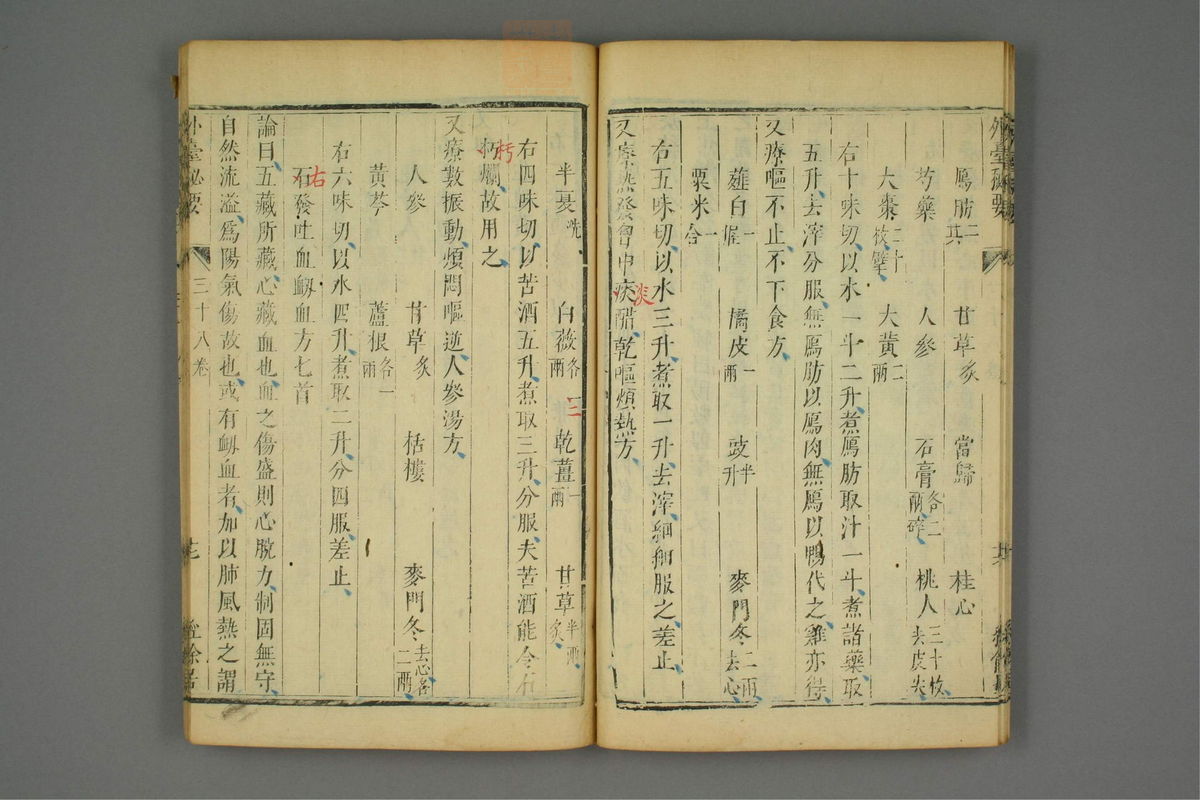 外臺秘要
鴈肪二具 甘草炙 當歸 桂心
芍藥 人參 石膏各二兩碎 桃人三十枚去皮尖
大棗二十枚擘 大黃二兩
右十味切以水一斗二升煮鴈肪取汁一斗煮諸藥取
五升去滓分服無鴈肪以鴈肉無鴈以鴨代之雞亦得
又療嘔不止不下食方
薤白一握 橘皮一兩 豉半升 麥門冬二兩去心
粟米一合
右五味切以水三升煮取一升去滓細細服之差止
又療熱發會中痰醋乾嘔煩熱方
淡
半夏洗 白薇各兩 乾薑一兩 甘草半兩炙
三
右四味切以苦酒五升煮取三升分服夫苦酒能令石
朽爛故用之
朽
又療數振動煩悶嘔逆人參湯方
人參 甘草炙 栝樓 麥門冬去心各二兩
黃芩 蘆根各一兩
右六味切以水四升煮取二升分四服差止
石發吐血衂血方七首
右
論曰五藏所藏心藏血也血之傷盛則心脫力制固無守
自然流溢為陽氣傷故也或有衂血者加以肺風熱之謂
外臺秘要 三十八卷 經餘居